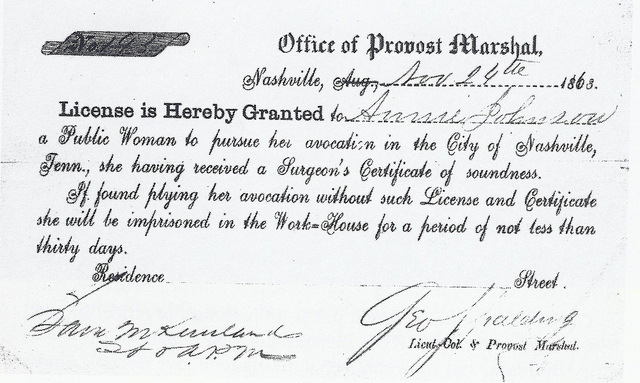 No. 195
Office of Provost Marshal,
Nashville, Aug., Nov 24th 1863.
License is Hereby Granted to Annie Johnson
a Public Woman to pursue her avocation in the City of Nashville,
Tenn., she having received a Surgeon's Certificate of soundness.
If found plying her avocation without such License and Certificate
she will be imprisoned in the Work=House for a period of not less than
thirty days.
Residence Street.
Geo Spalding
Lieut-Col. & Provost Marshal.